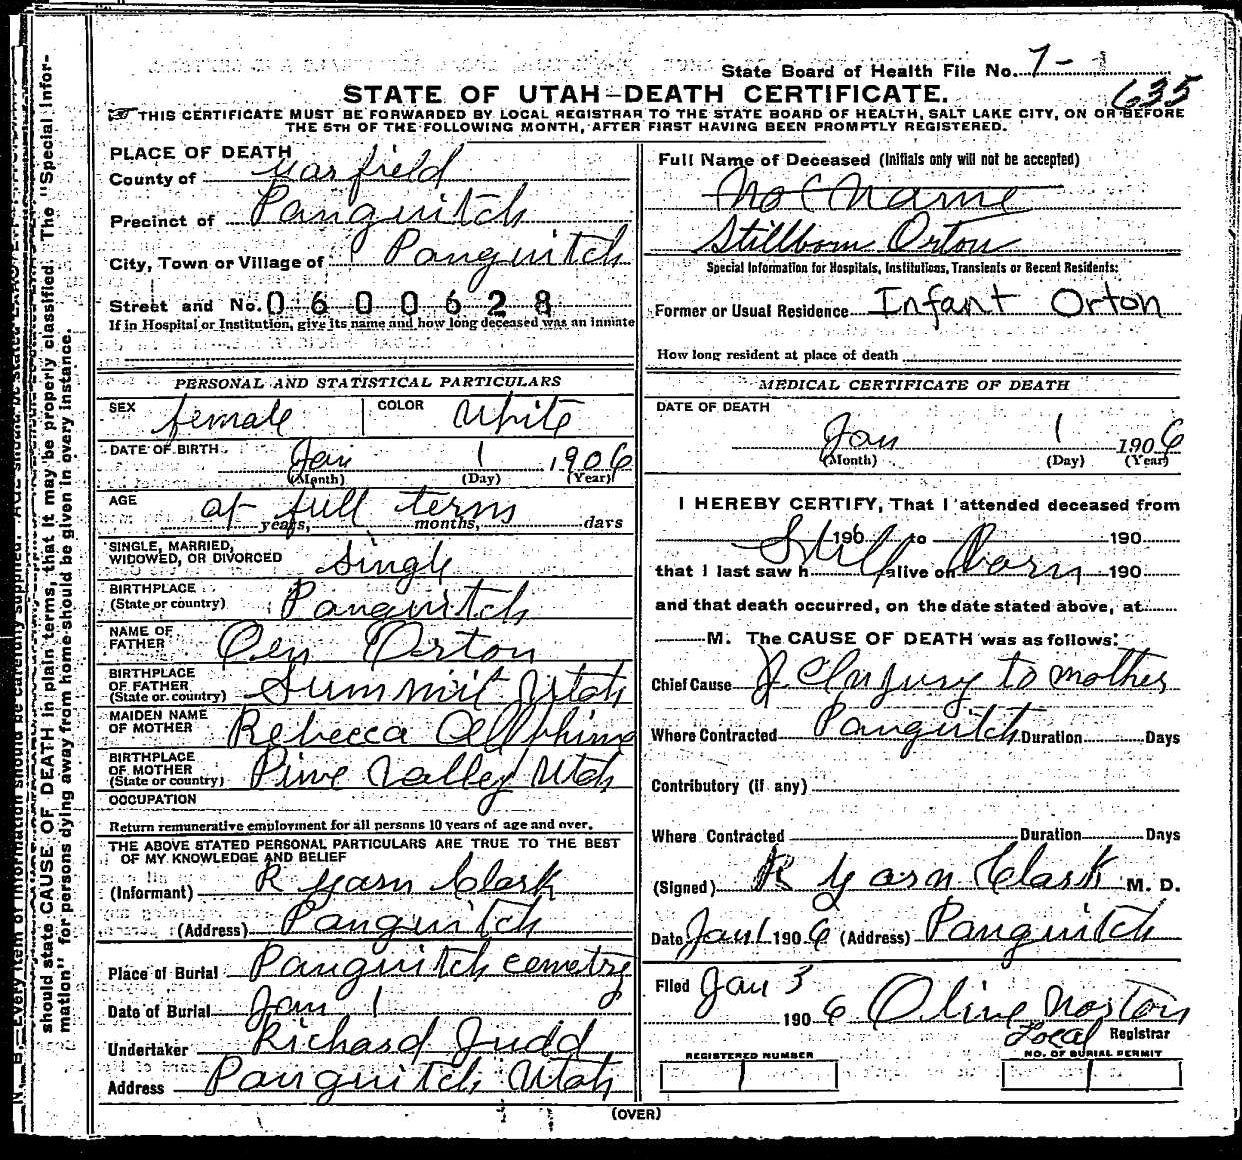 State Board of Health File No. 7-
635
STATE OF UTAH—DEATH CERTIFICATE.
THIS CERTIFICATE MUST BE FORWARDED BY LOCAL REGISTRAR TO THE STATE BOARD OF HEALTH, SALT LAKE CITY, ON OR BEFORE
THE 5TH OF THE FOLLOWING MONTH, AFTER FIRST HAVING BEEN PROMPTLY REGISTERED.
PLACE OF DEATH
County of Garfield
Precinct of Panguitch
City, Town or Village of Panguitch
Street and No. 0600628
If in Hospital or Institution, give its name and how long deceased was an inmate
Full Name of Deceased (Initials only will not be accepted)
No Name
Stillborn Orton
Special Information for Hospitals, Institutions, Transients or Recent Residents:
Former or Usual Residence Infant Orton
How long resident at place of death
PERSONAL AND STATISTICAL PARTICULARS
SEX female COLOR White
DATE OF BIRTH Jan 1 1906
(Month) (Day) (Year)
AGE at full term
years, months, days
SINGLE, MARRIED,
WIDOWED, OR DIVORCED Single
BIRTHPLACE
(State or country) Panguitch
NAME OF
FATHER Orton
BIRTHPLACE
OF FATHER
(State or country) Summit Utah
MAIDEN NAME
OF MOTHER Rebecca
BIRTHPLACE
OF MOTHER
(State or country) Pine Valley Utah
OCCUPATION
Return remunerative employment for all persons 10 years of age and over.
THE ABOVE STATED PERSONAL PARTICULARS ARE TRUE TO THE BEST
OF MY KNOWLEDGE AND BELIEF
(Informant) R Garn Clark
(Address) Panguitch
Place of Burial Panguitch cemetry
Date of Burial Jan 1
Undertaker Richard Judd
Address Panguitch Utah
MEDICAL CERTIFICATE OF DEATH
DATE OF DEATH
Jan 1 1906
(Month) (Day) (Year)
I HEREBY CERTIFY, That I attended deceased from
190 to 190
Still Born
that I last saw h alive on 190
and that death occurred, on the date stated above, at
M. The CAUSE OF DEATH was as follows:
Chief Cause Injury to mother
Where Contracted Panguitch Duration Days
Contributory (if any)
Where Contracted Duration Days
(Signed) R Garn Clark M. D.
Date Jan 1 1906 (Address) Panguitch
Filed Jan 3
1906 Olive Norton
Local Registrar
REGISTERED NUMBER
1
NO. OF BURIAL PERMIT
1
(OVER)
should state CAUSE OF DEATH in plain terms, that it may be properly classified. The "Special Infor-
mation" for persons dying away from home should be given in every instance.